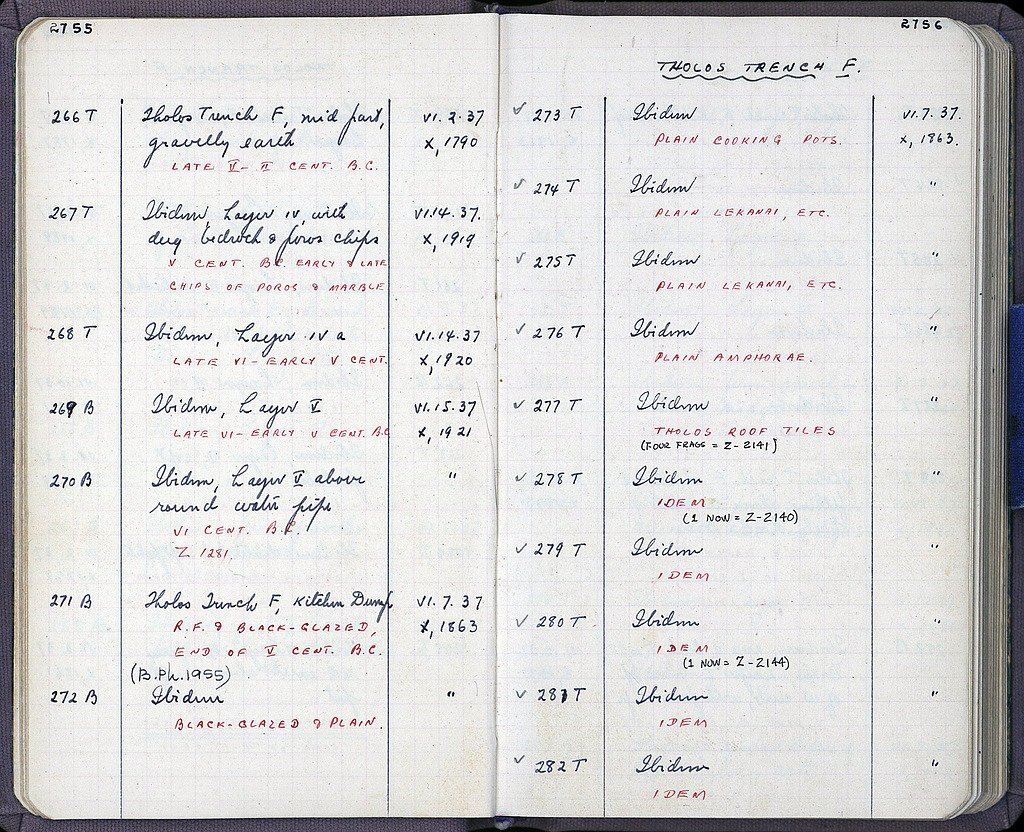 2755
266 T Tholos Trench F, mid part, VI.2.37
gravelly earth X, 1790
LATE V-II CENT. B.C.
267 T Ibidem, Layer IV, with VI.14.37.
dug bedrock & poros chips X, 1919
V CENT. B.C. EARLY & LATE
CHIPS OF POROS & MARBLE
268 T Ibidem, Layer IV a VI.14.37
LATE VI - EARLY V CENT. X, 1920
269 B Ibidem, Layer V VI.15.37
LATE VI - EARLY V CENT. B.C. X, 1921
270 B Ibidem, Layer V above "
round water pipe
VI CENT. B.C.
Z 1281.
271 B Tholos Trench F, Kitchen Dump VI.7.37
R.F. & BLACK-GLAZED, X, 1863
END OF V CENT. B.C.
(B.Ph.1955)
272 B Ibidem "
BLACK-GLAZED & PLAIN.
2756
THOLOS TRENCH F.
✓ 273 T Ibidem VI.7.37.
PLAIN COOKING POTS. X, 1863.
✓ 274 T Ibidem "
PLAIN LEKANAI, ETC.
✓ 275 T Ibidem "
PLAIN LEKANAI, ETC.
✓ 276 T Ibidem "
PLAIN AMPHORAE.
✓ 277 T Ibidem "
THOLOS ROOF TILES
(FOUR FRAGS = Z-2141)
✓ 278 T Ibidem "
IDEM
(1 NOW = Z-2140)
✓ 279 T Ibidem "
IDEM
✓ 280 T Ibidem "
IDEM
(1 NOW = Z-2144)
✓ 281 T Ibidem "
IDEM
✓ 282 T Ibidem "
IDEM